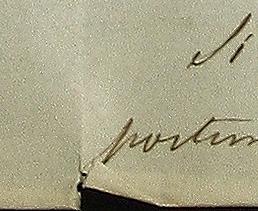 Si
portun